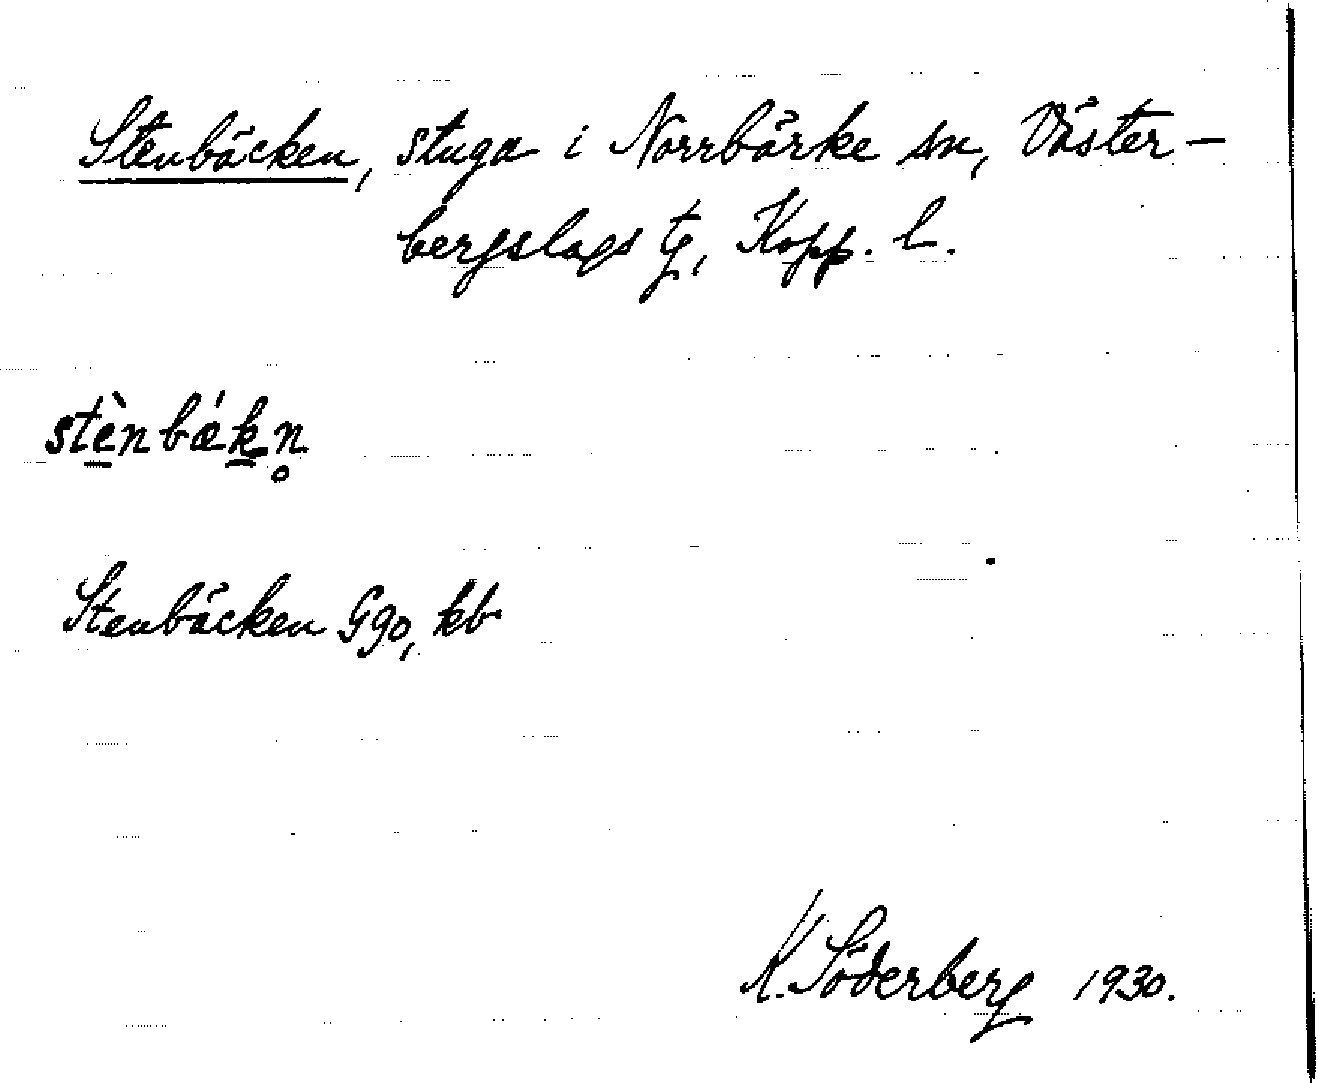 Stenbäcken, stuga i Norrbärke sn, Väster-
bergslags tg, Kopp. l.
stènbǽkn̥
Stenbäcken Ggo, kb
K. Söderberg 1930.